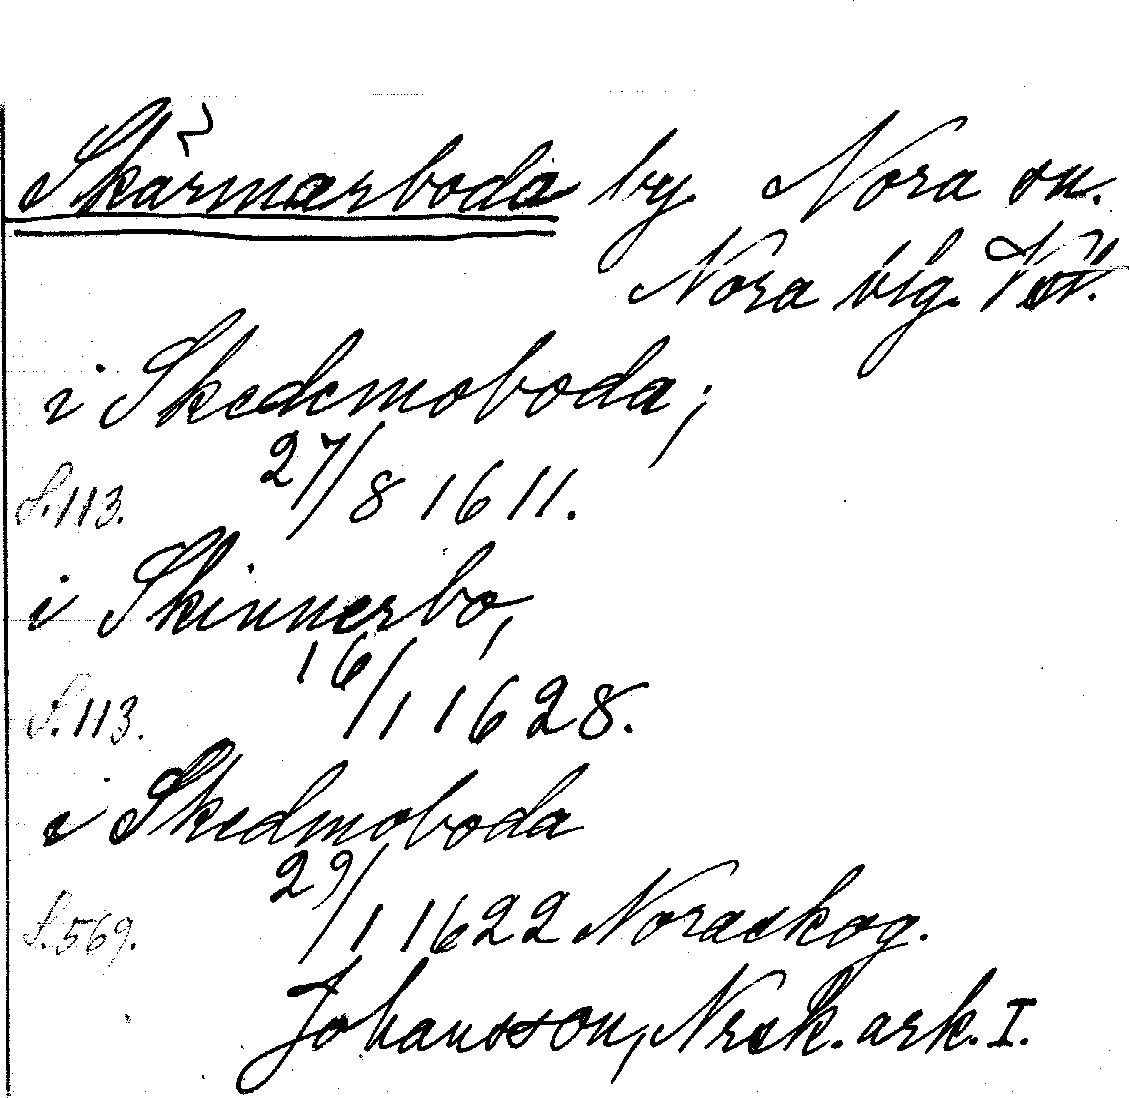 Skärmarboda by. Nora sn.
Nora blg. Vstl.
i Skedemoboda;
S. 113. 27/8 1611.
i Skinnerbo,
S. 113. 16/1 1628.
i Skedmoboda
S. 569. 29/1 1622 Noraskog.
Johansson, Nrsk. ark. I.